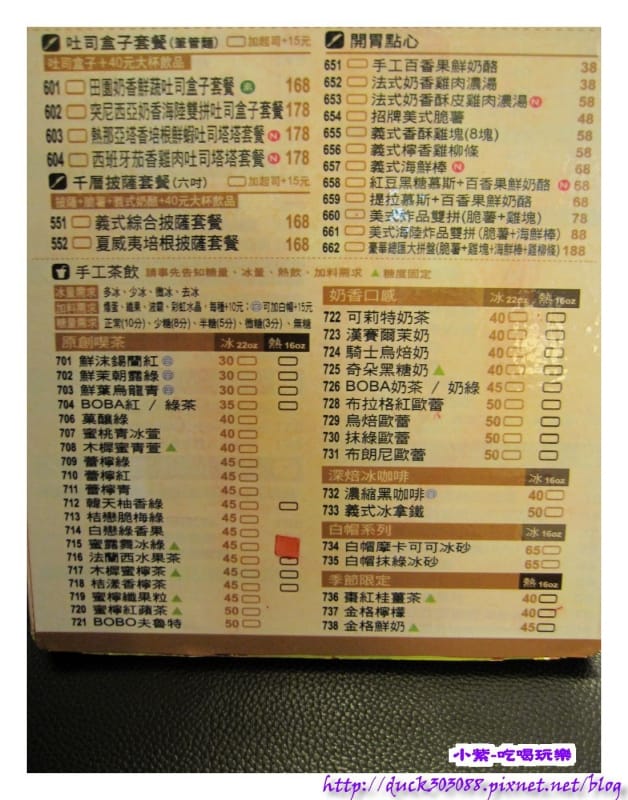 吐司盒子套餐(筆管麵) 加起司+15元
吐司盒子+40元大杯飲品
601 田園奶香鮮蔬吐司盒子套餐 素 168
602 突尼西亞奶香海陸雙拼吐司盒子套餐 178
603 熱那亞塔香培根鮮蝦吐司塔塔套餐 N 178
604 西班牙茄香雞肉吐司塔塔套餐 N 178
千層披薩套餐(六吋) 加起司+15元
披薩+脆薯+義式奶酪+40元大杯飲品
551 義式綜合披薩套餐 168
552 夏威夷培根披薩套餐 168
開胃點心
651 手工百香果鮮奶酪 38
652 法式奶香雞肉濃湯 38
653 法式奶香酥皮雞肉濃湯 N 58
654 招牌美式脆薯 48
655 義式香酥雞塊(8塊) 58
656 義式檸香雞柳條 58
657 義式海鮮棒 N 68
658 紅豆黑糖慕斯+百香果鮮奶酪 N 68
659 提拉慕斯+百香果鮮奶酪 68
660 美式炸品雙拼(脆薯+雞塊) 78
661 美式海陸炸品雙拼(脆薯+海鮮棒) 88
662 豪華總匯大拼盤(脆薯+雞塊+海鮮棒+雞柳條) 188
手工茶飲 請事先告知糖量、冰量、熱飲、加料需求 ▲糖度固定
冰量需求 多冰、少冰、微冰、去冰
加料需求
糖量需求 正常(10分)、少糖(8分)、半糖(5分)、微糖(3分)、無糖
原創喫茶 冰22oz 熱16oz
701 鮮沫錫蘭紅 30
702 鮮茉朝露綠 30
703 鮮葉烏龍青 30
704 BOBA紅 / 綠茶 35
706 菓釀綠 40
707 蜜桃青冰萱 40
708 木樨蜜青萱 ▲ 40
709 蕾檸綠 45
710 蕾檸紅 45
711 蕾檸青 45
712 韓天柚香綠 45
713 桔戀脆梅綠 45
714 白戀綠香果 45
715 蜜露舞冰綠 ▲ 45
716 法蘭西水果茶 45
717 木樨蜜檸茶 ▲ 45
718 桔漾香檸茶 45
719 蜜檸纖果粒 ▲ 45
720 蜜檸紅蘋茶 ▲ 50
721 BOBO夫魯特 50
奶香口感 冰22oz 熱16oz
722 可莉特奶茶 40
723 漢賽爾茉奶 40
724 騎士烏焙奶 40
725 奇朵黑糖奶 ▲ 40
726 BOBA奶茶 / 奶綠 45
728 布拉格紅歐蕾 50
729 烏焙歐蕾 50
730 抹綠歐蕾 50
731 布朗尼歐蕾 50
深焙冰咖啡 冰16oz
732 濃縮黑咖啡 40
733 義式冰拿鐵 50
白帽系列 冰16oz
734 白帽摩卡可可冰砂 65
735 白帽抹綠冰砂 65
季節限定 熱16oz
736 棗紅桂薑茶 ▲ 40
737 金格檸檬 40
738 金格鮮奶 ▲ 45
小紫-吃喝玩樂
http://duck303088.pixnet.net/blog